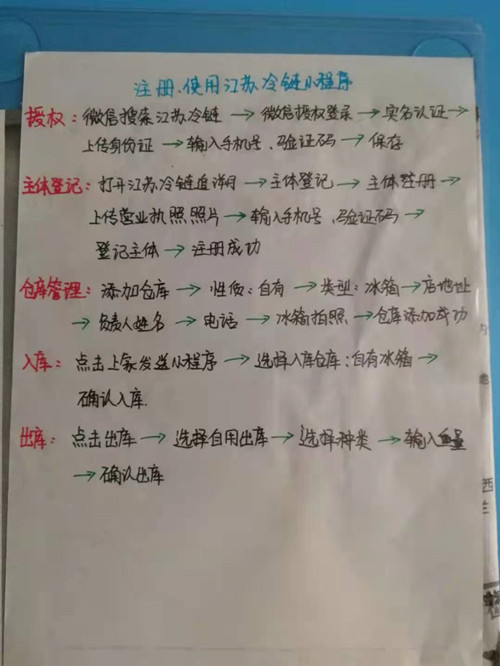 注册、使用江苏冷链小程序
授权：微信搜索江苏冷链→微信授权登录→实名认证→
上传身份证→输入手机号、验证码→保存
主体登记：打开江苏冷链追溯→主体登记→主体注册→
上传营业执照照片→输入手机号、验证码→
登记主体→注册成功
仓库管理：添加仓库→性质：自有→类型：冰箱→店地址
→负责人姓名→电话→冰箱拍照→仓库添加成功
入库：点击上家发送小程序→选择入库仓库：自有冰箱→
确认入库.
出库：点击出库→选择自用出库→选择种类→输入重量
→确认出库
西
兰